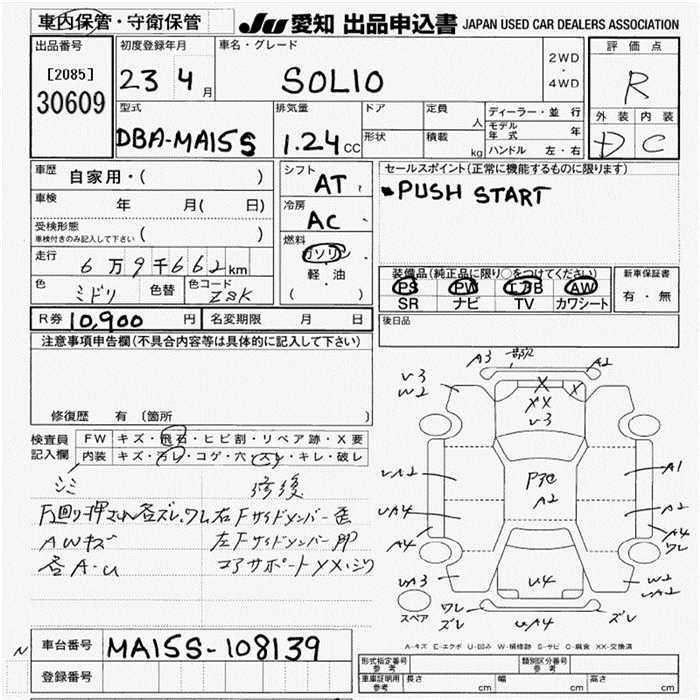 車内保管・守衛保管
JU 愛知 出品申込書 JAPAN USED CAR DEALERS ASSOCIATION
出品番号
[2085]
30609
初度登録年月
23 4 月
車名・グレード
SOLIO
2WD
・
4WD
評価点
R
外装 内装
D C
型式
DBA-MA15S
排気量
1.24 CC
ドア
形状
定員
人
積載
kg
ディーラー・並行
モデル年式 年
ハンドル 左・右
車歴
自家用・( )
車検
年 月( 日)
受検形態
車検付きのみ記入して下さい ( )
走行
6万9千662km
色
ミドリ
色替
色コード
シフト
AT
冷房
AC
燃料
ガソリン
軽・油
( )
セールスポイント(正常に機能するものに限ります)
・PUSH START
装備品(純正品に限り○をつけてください)
PS PW エアB AW
SR ナビ TV カワシート
新車保証書
有・無
R券 10,900 円
名変期限 月 日
後日品
注意事項申告欄(不具合内容等は具体的に記入して下さい)
修復歴 有 〔箇所 〕
検査員
記入欄
FW キズ・飛石・ヒビ割・リペア跡・X要
内装 キズ・汚レ・コゲ・穴・スレ・キレ・破レ
修復
右Fサイドメンバー歪
AWキズ
左Fサイドメンバー
各A・U
コアサポートXX・ジワ
A3 一部欠 A2
V3
W2
X X
XX
V3
UA2
UA4
A4
UA3
A2
A1
UA2
A4
ワレ
W2
UA2
U4
ワレ
ズレ
UA4
ズレ
スペア
A-キズ E-エクボ U-凹み W-補修跡 S-サビ C-腐食 XX-交換済
車台番号
MA15S-108139
登録番号
形式指定番号
参考
類別区分番号
参考
車庫証明用
参考
長さ cm 幅 cm 高さ cm